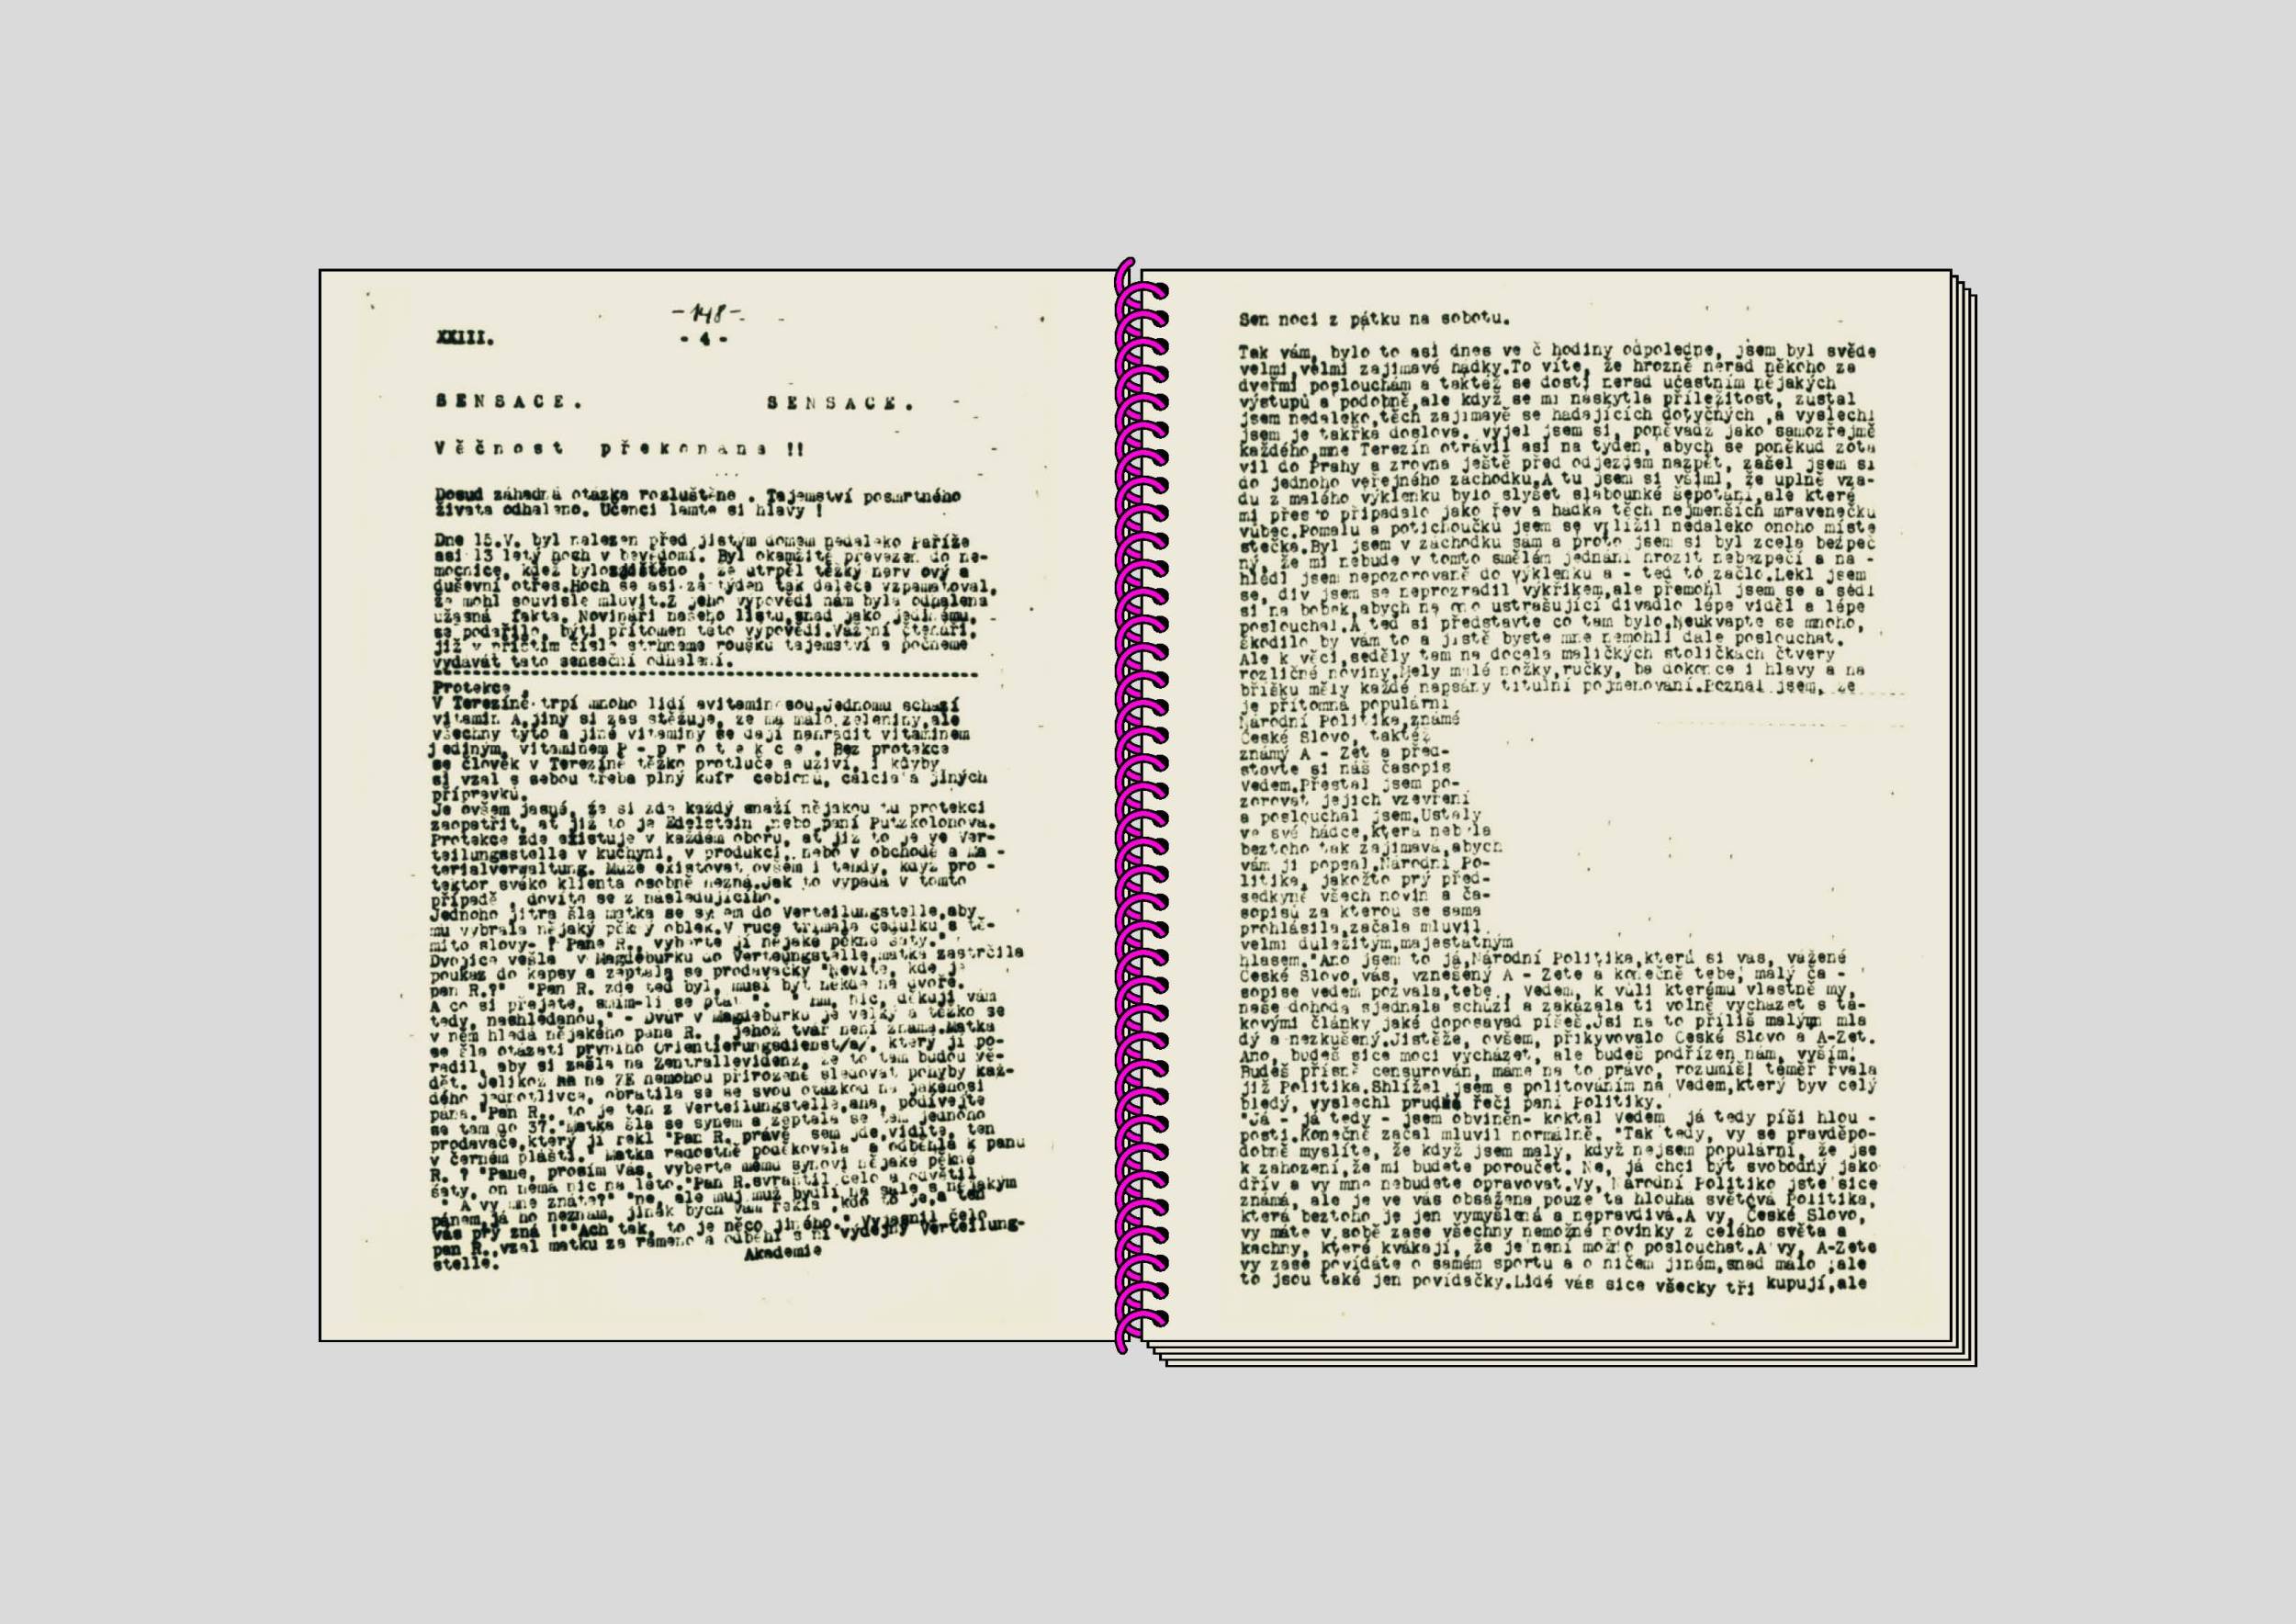 -148-
XXIII.
- 4 -
SENSACE. SENSACE.
Věčnost překonana !!
Dosud záhadná otázka rozluštěna . Tajemství posmrtného
života odhaleno. Učenci lamte si hlavy !
Dne 15.V. byl nalezen před jistým domem nedaleko Paříže
asi 13 letý hoch v bevědomí. Byl okamžitě převezen do ne-
mocnice, kdež bylo , že utrpěl těžký nerv ový a
duševní otřes.Hoch se asi za týden tak dalece vzpamatoval,
že mohl souvisle mluvit.Z jeho výpovědi nám byla odhalena
užasná fakta. Novináři našeho listu,snad jako jedinému,
se podařilo, býti přítomen této výpovědi.Važení čtenáři,
již v příštím čísle strhneme roušku tajemství a počneme
vydávat tato sensační odhalení.
Protekce .
V Terezíně trpí mnoho lidí avitaminosou.Jednomu schazí
vitamin A,jiný si zas stěžuje, že má málo zeleniny,ale
všechny tyto a jiné vitaminy se dají nahradit vitaminem
jediným, vitaminem P - p r o t e k c e . Bez protekce
se člověk v Terezíně těžko protluče a uživí, i kdyby
si vzal s sebou třeba plný kufr cebionu, calcia a jiných
přípravků.
Je ovšem jasné, že si zde každý snaží nějakou tu protekci
zaopatřit, ať již to je Edelstein ,nebo paní Putzkolonova.
Protekce zde existuje v každém oboru, ať již to je ve Ver-
teilungsstelle v kuchyni, v produkci, nebo v obchodě a Ma -
terialverwaltung. Muže existovat ovšem i tehdy, když pro -
tektor svéko klienta osobně nezná.Jak to vypadá v tomto
případě , dovíte se z následujícího.
Jednoho jitra šla matka se synem do Verteilungstelle,aby
mu vybrala nějaký pěkný oblek.V ruce třímala cedulku s tě-
mito slovy- ? Pane R., vyberte jí nějaké pěkné šaty."
Dvojice vešla v Magdeburku do Verteungstelle,matka zastrčila
poukaz do kapsy a zeptala se prodavačky "Nevíte, kde je
pan R.?" "Pan R. zde teď byl, musí být někde na dvoře.
A co si přejete, smím-li se ptat ". " Hm, nic, děkuji vám
tedy, nashledanou," - Dvůr v Magdeburku je velký a těžko se
v něm hledá nějakého pana R. , jehož tvář není známa.Matka
se šla otázati prvního Orientierungsdienst/a/, který jí po-
radil, aby si zašla na Zentrallevidenz, že to tam budou vě-
dět. Jelikož na ZE nemohou přirozeně sledovat pohyby kaž-
dého jednotlivce, obrátila se se svou otázkou na jakéhosi
pána."Pan R., to je ten z Verteilungstelle,ano, podívejte
se tam do 37."Matka šla se synem a zeptala se tam jednoho
prodavače,který jí řekl "Pan R. právě sem jde,vidíte, ten
v černém plášti." Matka radostně poděkovala a odběhla k panu
R. ? "Pane, prosím Vás, vyberte mému synovi nějaké pěkné
šaty, on nemá nic na léto."Pan R.svraštil čelo a odvětil
" A vy mne znáte?" "ne, ale muj muž bydlí na sále s nějakým
pánem,já ho neznám, jinak bych Vám řekla ,kdo to je,a ten
vás prý zná !""Ach tak, to je něco jiného." Vyjasnil čelo
pan R.,vzal matku za rameno a odběhl s ní výdejny Verteilung-
stelle. Akademie
Sen noci z pátku na sobotu.
Tak vám, bylo to asi dnes ve č hodiny odpoledne, jsem byl svěde
velmi,velmi zajímavé hádky.To víte, že hrozně nerad někoho za
dveřmi poslouchám a taktéž se dosti nerad učastním nějakých
výstupů a podobně,ale když se mi naskytla příležitost, zůstal
jsem nedaleko,těch zajímavě se hádajících dotyčných ,a vyslechl
jsem je takřka doslova. vyjel jsem si, poněvadž jako samozřejmě
každého,mne Terezín otrávil asi na týden, abych se poněkud zota
vil do Prahy a zrovna ještě před odjezdem nazpět, zašel jsem si
do jednoho veřejného záchodku.A tu jsem si všiml, že uplně vza-
du z malého výklenku bylo slyšet slabounké šepotání,ale které
mi přesto připadalo jako řev a hádka těch nejmenších mravenečku
vůbec.Pomalu a potichoučku jsem se vplížil nedaleko onoho míste
stečka.Byl jsem v záchodku sám a proto jsem si byl zcela bezpeč
ný, že mi nebude v tomto smělém jednání hrozit nebezpečí a na -
hlédl jsem nepozorovaně do výklenku a - teď to začlo.Lekl jsem
se, div jsem se neprozradil výkřikem,ale přemohl jsem se a sedl
si na bobek,abych na ono ustrašující divadlo lépe viděl a lépe
poslouchal.A teď si představte co tam bylo.Neukvapte se mnoho,
škodilo by vám to a jistě byste mne nemohli dále poslouchat.
Ale k věci,seděly tam na docela maličkých stoličkách čtvery
rozličné noviny.Měly malé nožky,ručky, ba dokonce i hlavy a na
bříšku měly každé napsány titulní pojmenování.Poznal jsem, že
je přítomná populární
Národní Politika,známé
České Slovo, taktéž
známý A - Zet a před-
stavte si náš časopis
Vedem.Přestal jsem po-
zorovat jejich vzevření
a poslouchal jsem.Ustaly
ve své hádce,která nebyla
beztoho tak zajímavá,abych
vám ji popsal.Národní Po-
litika, jakožto prý před-
sedkyně všech novin a ča-
sopisů za kterou se sama
prohlásila,začala mluvil
velmi důležitým,majestátným
hlasem."Ano jsem to já,Národní Politika,která si vás, vážené
České Slovo,vás, vznešený A - Zete a konečně tebe, malý ča -
sopise vedem pozvala,tebe , vedem, k vůli kterému vlastně my,
naše dohoda sjednala schůzi a zakázala ti volně vycházet s ta-
kovými články jaké doposavad píšeš.Jsi na to příliš malým mla
dý a nezkušený.Jistěže, ovšem, přikyvovalo České Slovo a A-Zet.
Ano, budeš sice moci vycházet, ale budeš podřízen nám, vyším!
Budeš přísně censurován, máme na to právo, rozumíš! téměř řvala
již Politika.Shlížel jsem s politováním na Vedem,který byv celý
bledý, vyslechl prudké řeči paní Politiky.
"Já - já tedy - jsem obviněn- koktal Vedem já tedy píši hlou -
posti.Konečně začal mluvil normálně. "Tak tedy, vy se pravděpo-
dobně myslíte, že když jsem malý, když nejsem populární, že jse
k zahození,že mi budete poroučet. Ne, já chci být svobodný jako
dřív a vy mne nebudete opravovat.Vy, Národní Politiko jste sice
známá, ale je ve vás obsažena pouze ta hlouhá světová Politika,
která beztoho je jen vymyšlená a nepravdivá.A vy, České Slovo,
vy máte v sobě zase všechny nemožné novinky z celého světa a
kachny, které kvákají, že je není možno poslouchat.A vy, A-Zete
vy zase povídáte o samém sportu a o ničem jiném,snad málo ,ale
to jsou také jen povídačky.Lidé vás sice všecky tři kupují,ale